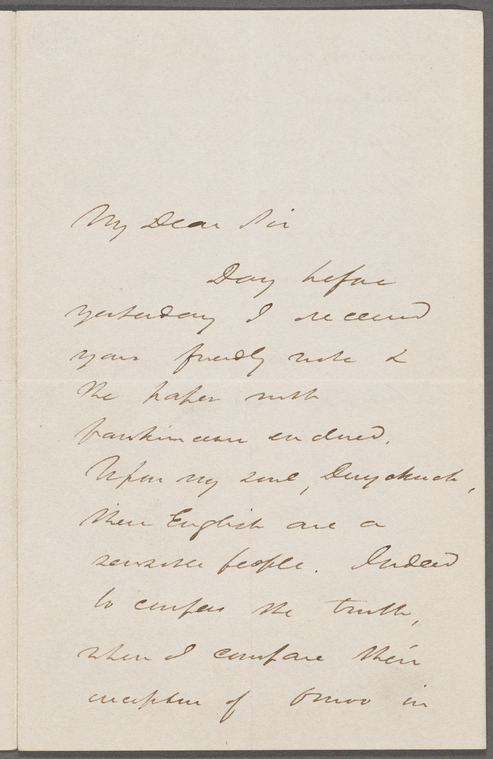 My Dear Sir
Day before
yesterday I received
your friendly note &
the paper with
frankincense enclosed.
Upon my soul, Duyckinck,
these English are a
sensible people. Indeed
to confess the truth,
when I compare their
reception of Omoo in